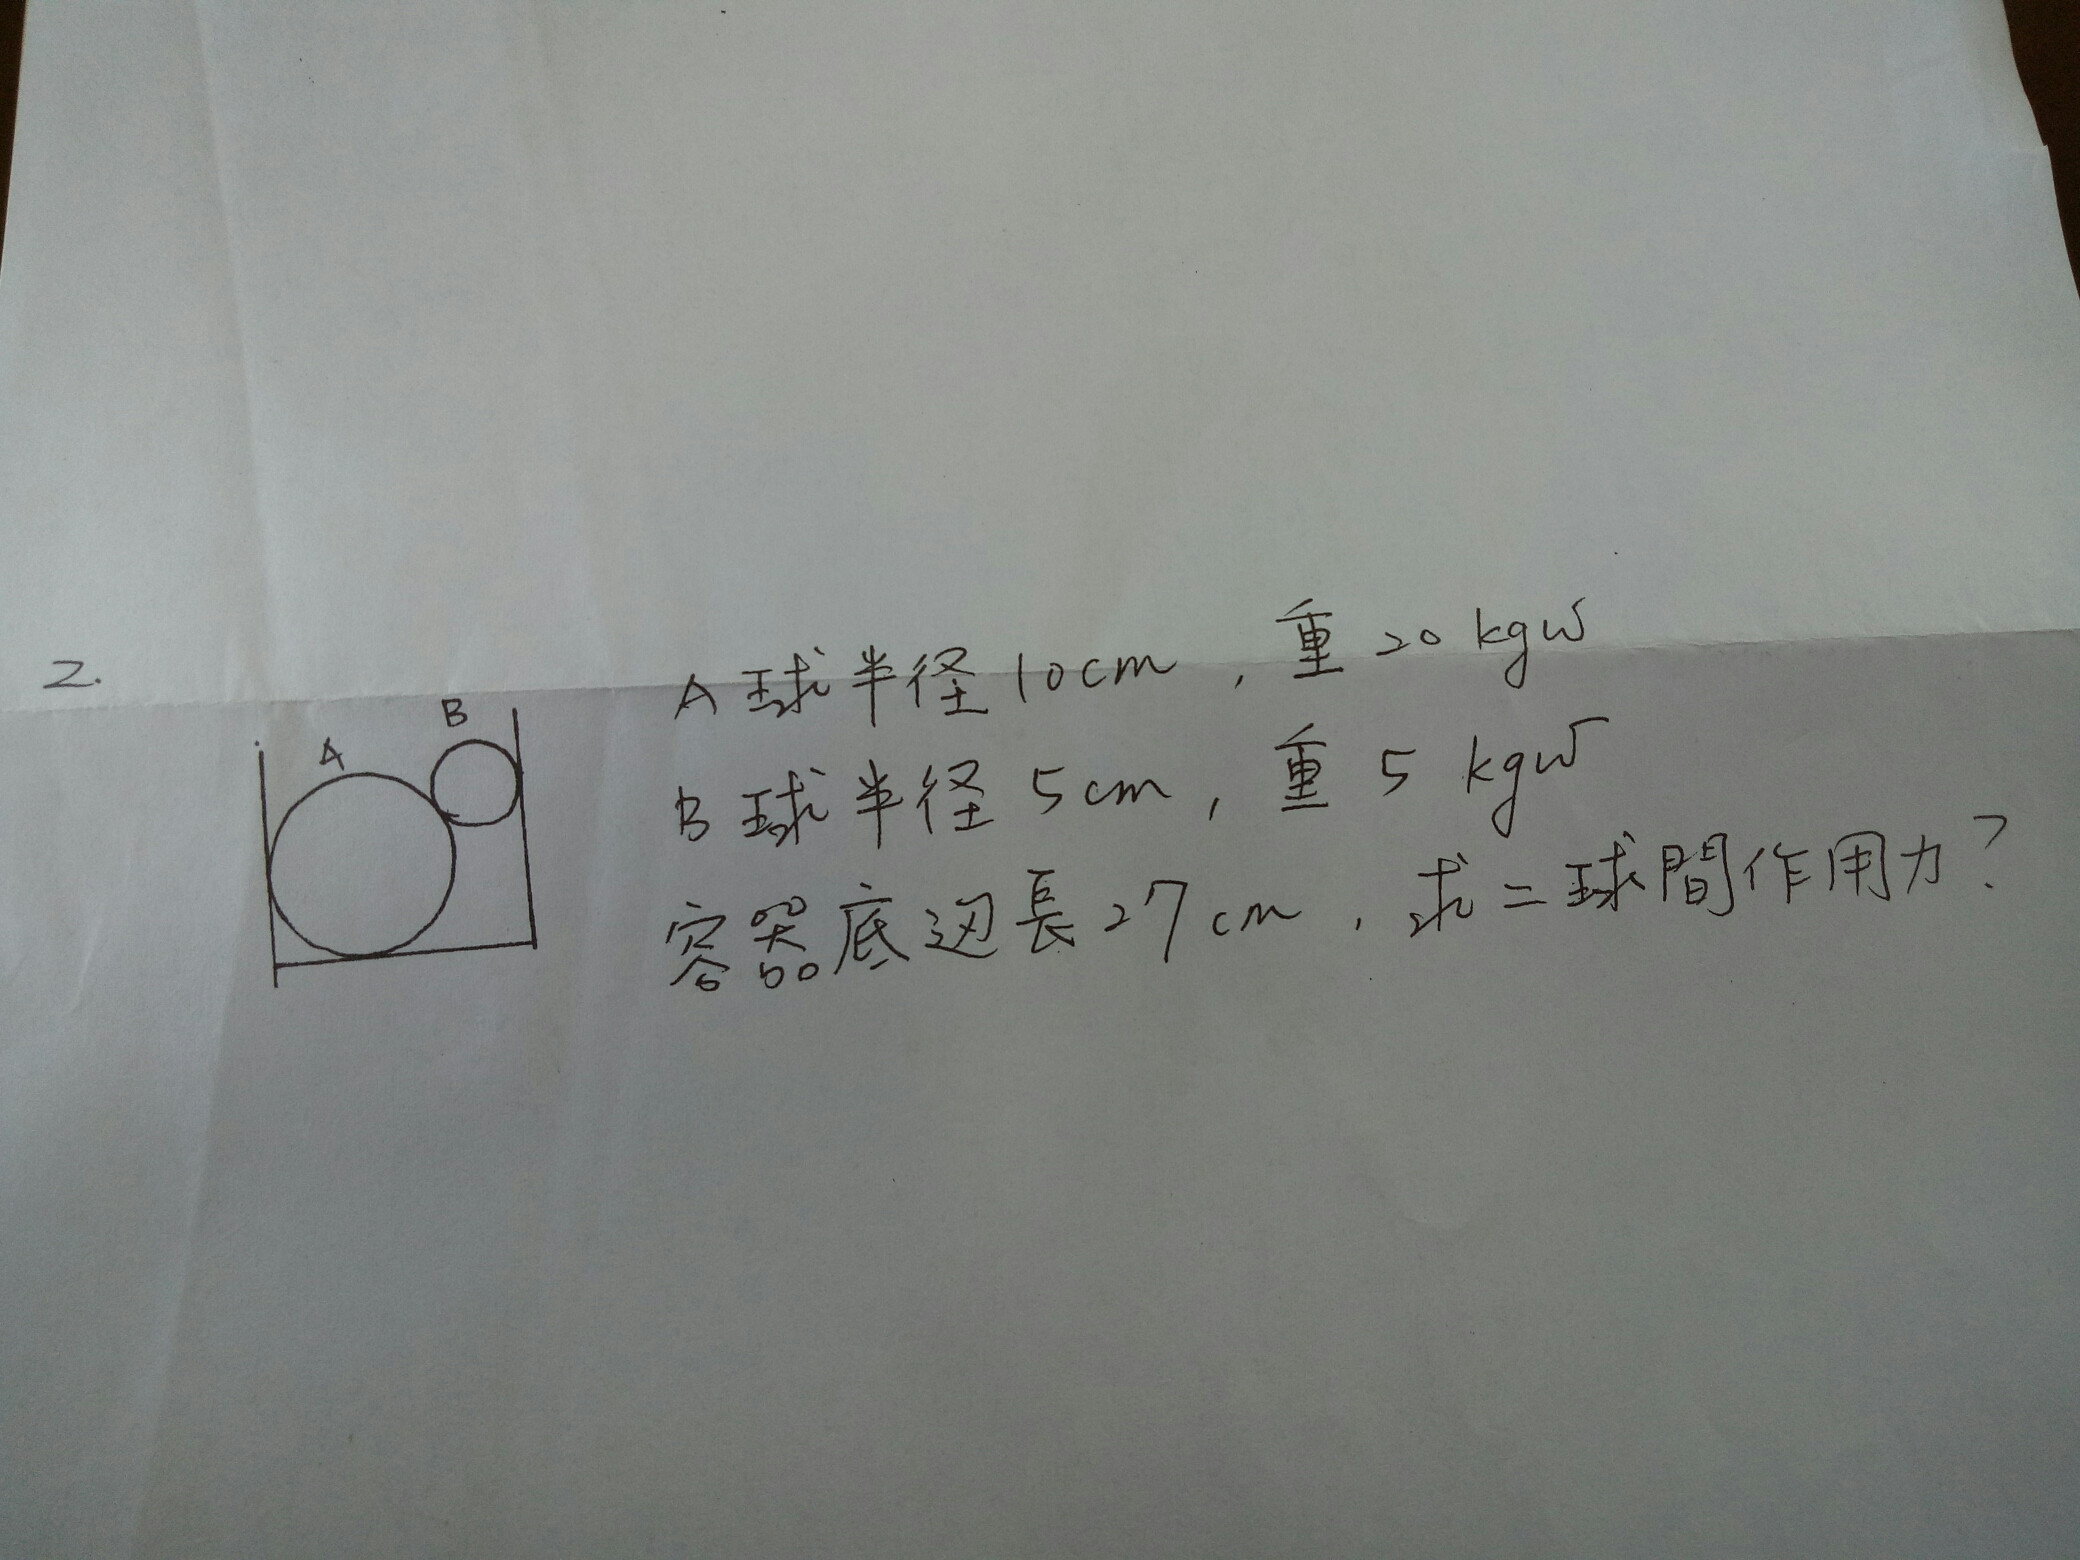 2.
A
B
A球半径10cm，重20kgw
B球半径5cm，重5kgw
容器底边長27cm，求二球間作用力？